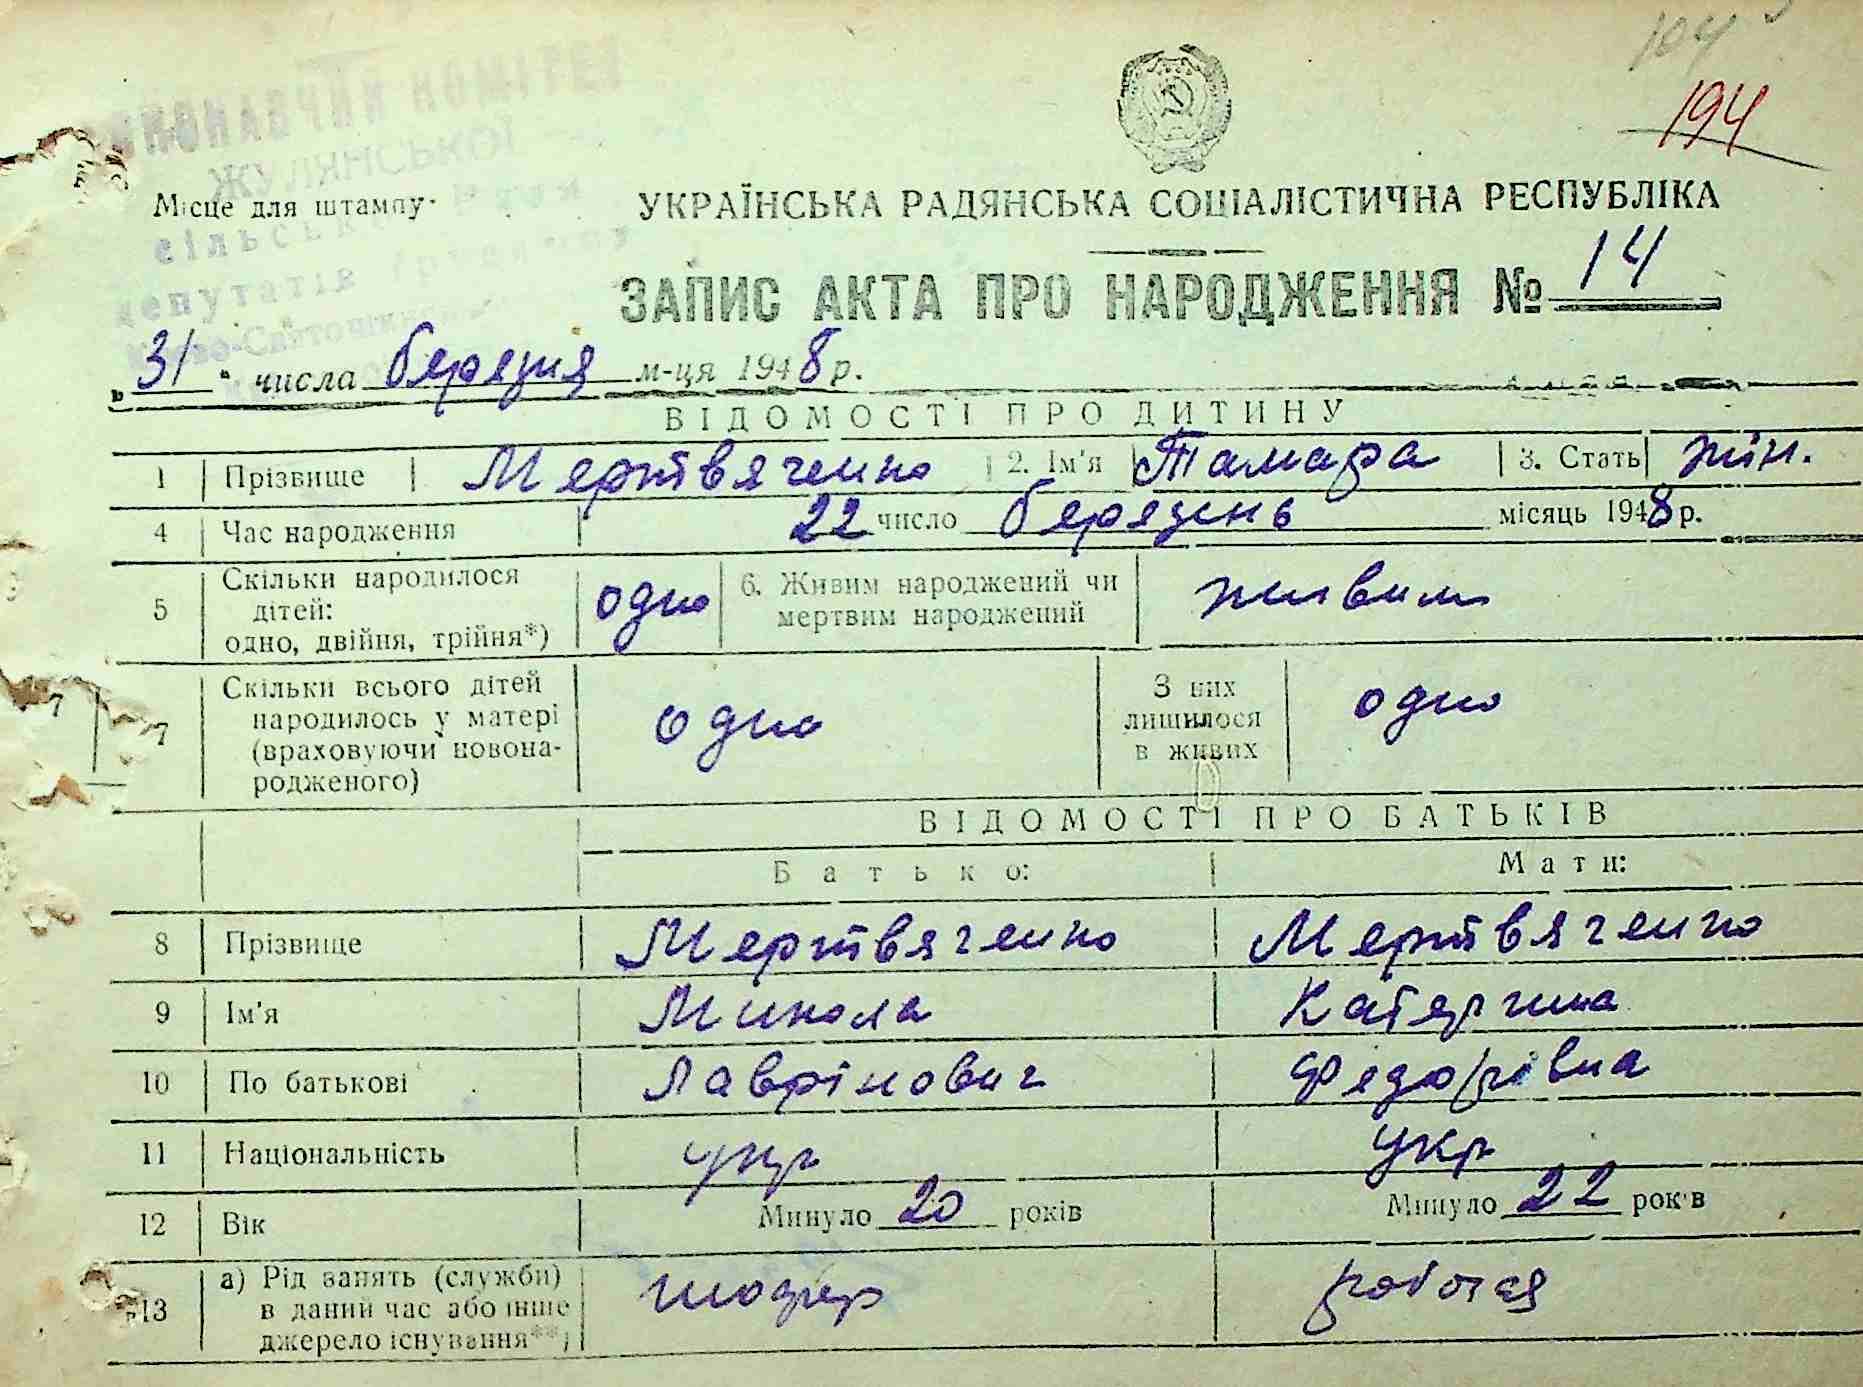 104
194
ВИКОНАВЧИЙ КОМІТЕТ
ЖУЛЯНСЬКОЇ
Місце для штампу
сільської Ради
депутатів трудящих
УКРАЇНСЬКА РАДЯНСЬКА СОЦІАЛІСТИЧНА РЕСПУБЛІКА
ЗАПИС АКТА ПРО НАРОДЖЕННЯ № 14
„31“ числа березня м-ця 1948 р.
ВІДОМОСТІ ПРО ДИТИНУ
1 Прізвище Мертвяченко 2. Ім'я Тамара 3. Стать жін.
4 Час народження 22 число березень місяць 1948 р.
5 Скільки народилося дітей: одно, двійня, трійня*) одно 6. Живим народжений чи мертвим народжений живим
7 Скільки всього дітей народилось у матері (враховуючи новонародженого) одно З них лишилося в живих одно
ВІДОМОСТІ ПРО БАТЬКІВ
Батько: Мати:
8 Прізвище Мертвяченко Мертвяченко
9 Ім'я Микола Катерина
10 По батькові Лаврінович Федорівна
11 Національність укр укр
12 Вік Минуло 20 років Минуло 22 років
13 а) Рід занять (служби) в даний час або інше джерело існування**) шофер робочая